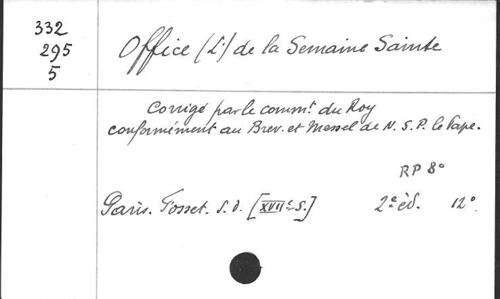 332
295
5
Office (L') de la Semaine Sainte
Corrigé par le commt. du Roy
conformément au Brev. et Messel de N. S. P. le Pape.
RP 8°
Paris. Fosset. S. D. [XVIIe S.] 2e éd. 12°